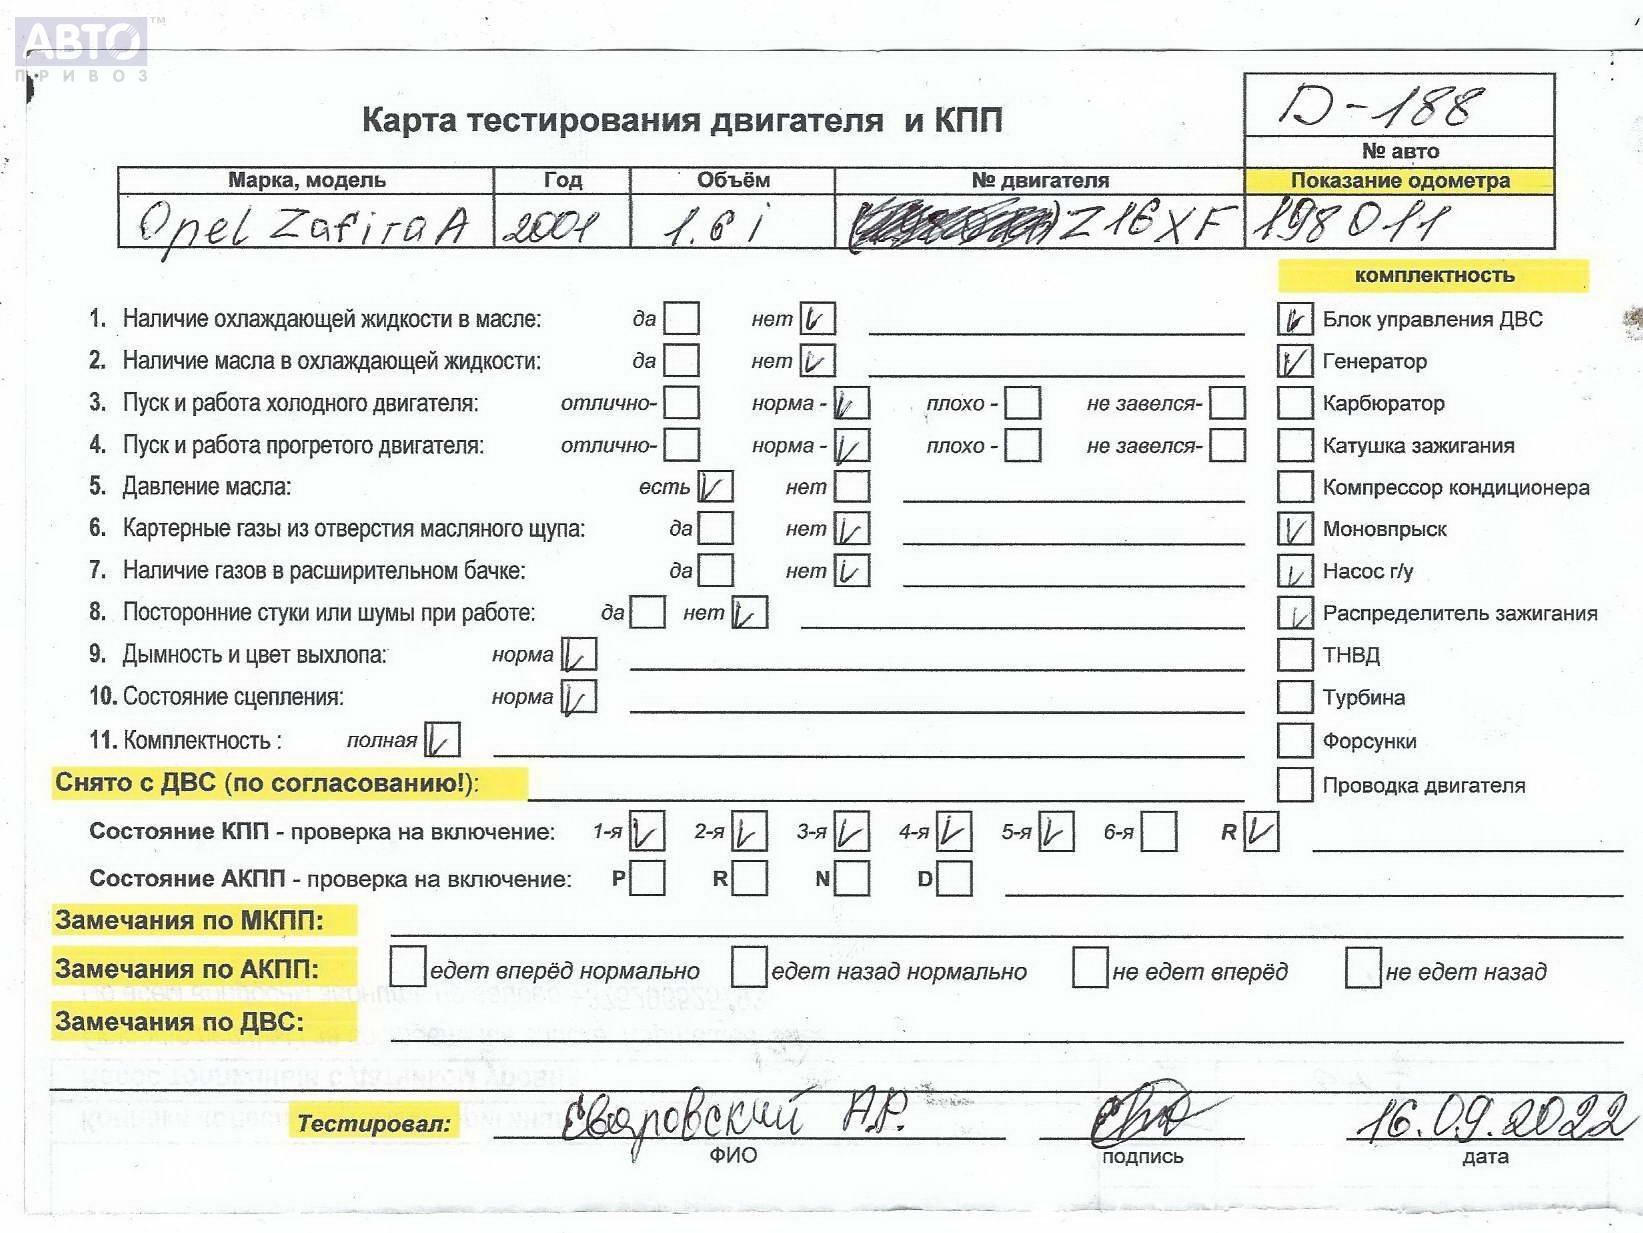 АВТО™
ПРИВОЗ
D-188
Карта тестирования двигателя и КПП
№ авто
Марка, модель Год Объём № двигателя Показание одометра
Opel Zafira A 2001 1.6 i Z16XF 198011
комплектность
1. Наличие охлаждающей жидкости в масле: да нет Блок управления ДВС
2. Наличие масла в охлаждающей жидкости: да нет Генератор
3. Пуск и работа холодного двигателя: отлично- норма - плохо - не завелся- Карбюратор
4. Пуск и работа прогретого двигателя: отлично- норма - плохо - не завелся- Катушка зажигания
5. Давление масла: есть нет Компрессор кондиционера
6. Картерные газы из отверстия масляного щупа: да нет Моновпрыск
7. Наличие газов в расширительном бачке: да нет Насос г/у
8. Посторонние стуки или шумы при работе: да нет Распределитель зажигания
9. Дымность и цвет выхлопа: норма ТНВД
10. Состояние сцепления: норма Турбина
11. Комплектность : полная Форсунки
Снято с ДВС (по согласованию!): Проводка двигателя
Состояние КПП - проверка на включение: 1-я 2-я 3-я 4-я 5-я 6-я R
Состояние АКПП - проверка на включение: P R N D
Замечания по МКПП:
Замечания по АКПП: едет вперёд нормально едет назад нормально не едет вперёд не едет назад
Замечания по ДВС:
Тестировал: А.Р. 16.09.2022
ФИО подпись дата